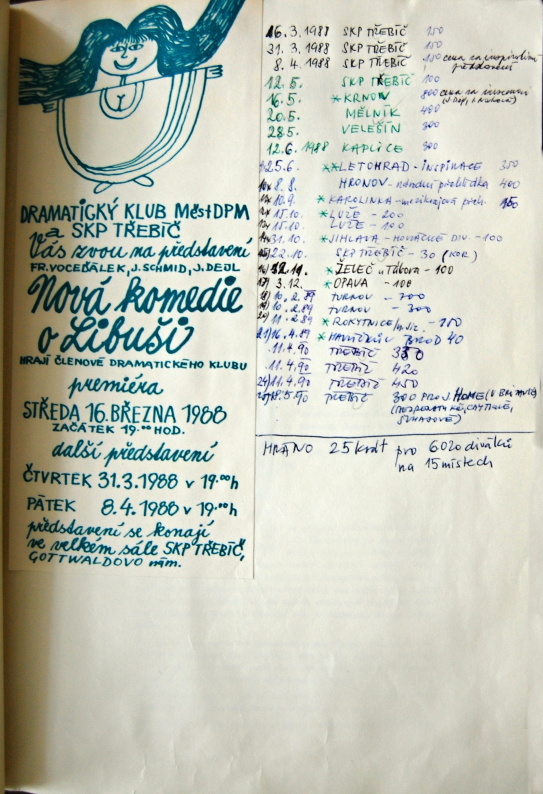 DRAMATICKÝ KLUB MěstDPM
a SKP TŘEBÍČ
Vás zvou na představení
FR. VOCEĎÁLEK, J. SCHMID, J. DEDL
Nová komedie
o Libuši
HRAJÍ ČLENOVÉ DRAMATICKÉHO KLUBU
premiéra
STŘEDA 16. BŘEZNA 1988
ZAČÁTEK 19⁰⁰ HOD.
další představení
ČTVRTEK 31.3.1988 v 19.⁰⁰h
PÁTEK 8.4.1988 v 19.⁰⁰h
představení se konají
ve velkém sále SKP TŘEBÍČ,
GOTTWALDOVO nám.
16.3.1988 SKP TŘEBÍČ
31.3.1988 SKP TŘEBÍČ 150
8.4.1988 SKP TŘEBÍČ cena za
12.5. SKP TŘEBÍČ 100
16.5. *KRNOV cena za
20.5. MĚLNÍK 400
28.5. VELEŠÍN 300
12.6.1988 KAPLICE 300
25.6. **LETOHRAD - INSPIRACE 350
8.8. HRONOV - národní přehlídka 400
10.9. *KAROLINKA
15.10. *LUŽE - 200
15.10. LUŽE - 100
31.10. *JIHLAVA - HORÁCKÉ DIV. - 100
22.10. SKP TŘEBÍČ - 30
*ŽELEČ u Tábora - 100
3.12. *OPAVA - 100
10.2.89 TURNOV
10.2.89 TURNOV - 300
11.2.89 *ROKYTNICE
21) 16.4.89 *HAVLÍČKŮV BROD 40
11.4.90 TŘEBÍČ
11.4.90 TŘEBÍČ 420
24) 11.4.90 TŘEBÍČ 450
18.5.90 TŘEBÍČ 300 PRO J. HOME
HRÁNO 25krát pro 6020 diváků
na 15 místech